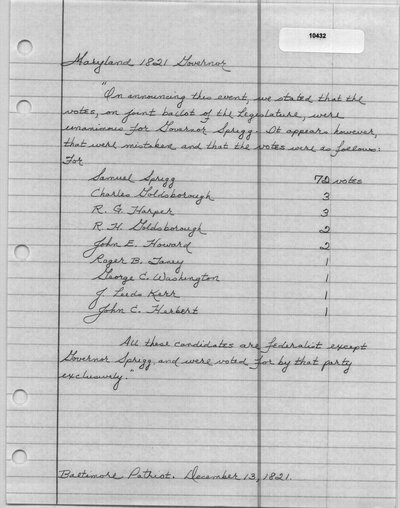 10432
Maryland 1821 Governor
"On announcing this event, we stated that the
votes, on joint ballot of the Legislature, were
unanimous for Governor Sprigg. It appears however,
that were mistaken and that the votes were as follows:
For
Samuel Sprigg 72 votes
Charles Goldsborough 3
R. G. Harper 3
R. H. Goldsborough 2
John E. Howard 2
Roger B. Taney 1
George C. Washington 1
J. Leeds Kerr 1
John C. Herbert 1
All these candidates are federalist except
Governor Sprigg and were voted for by that party
exclusively."
Baltimore Patriot. December 13, 1821.